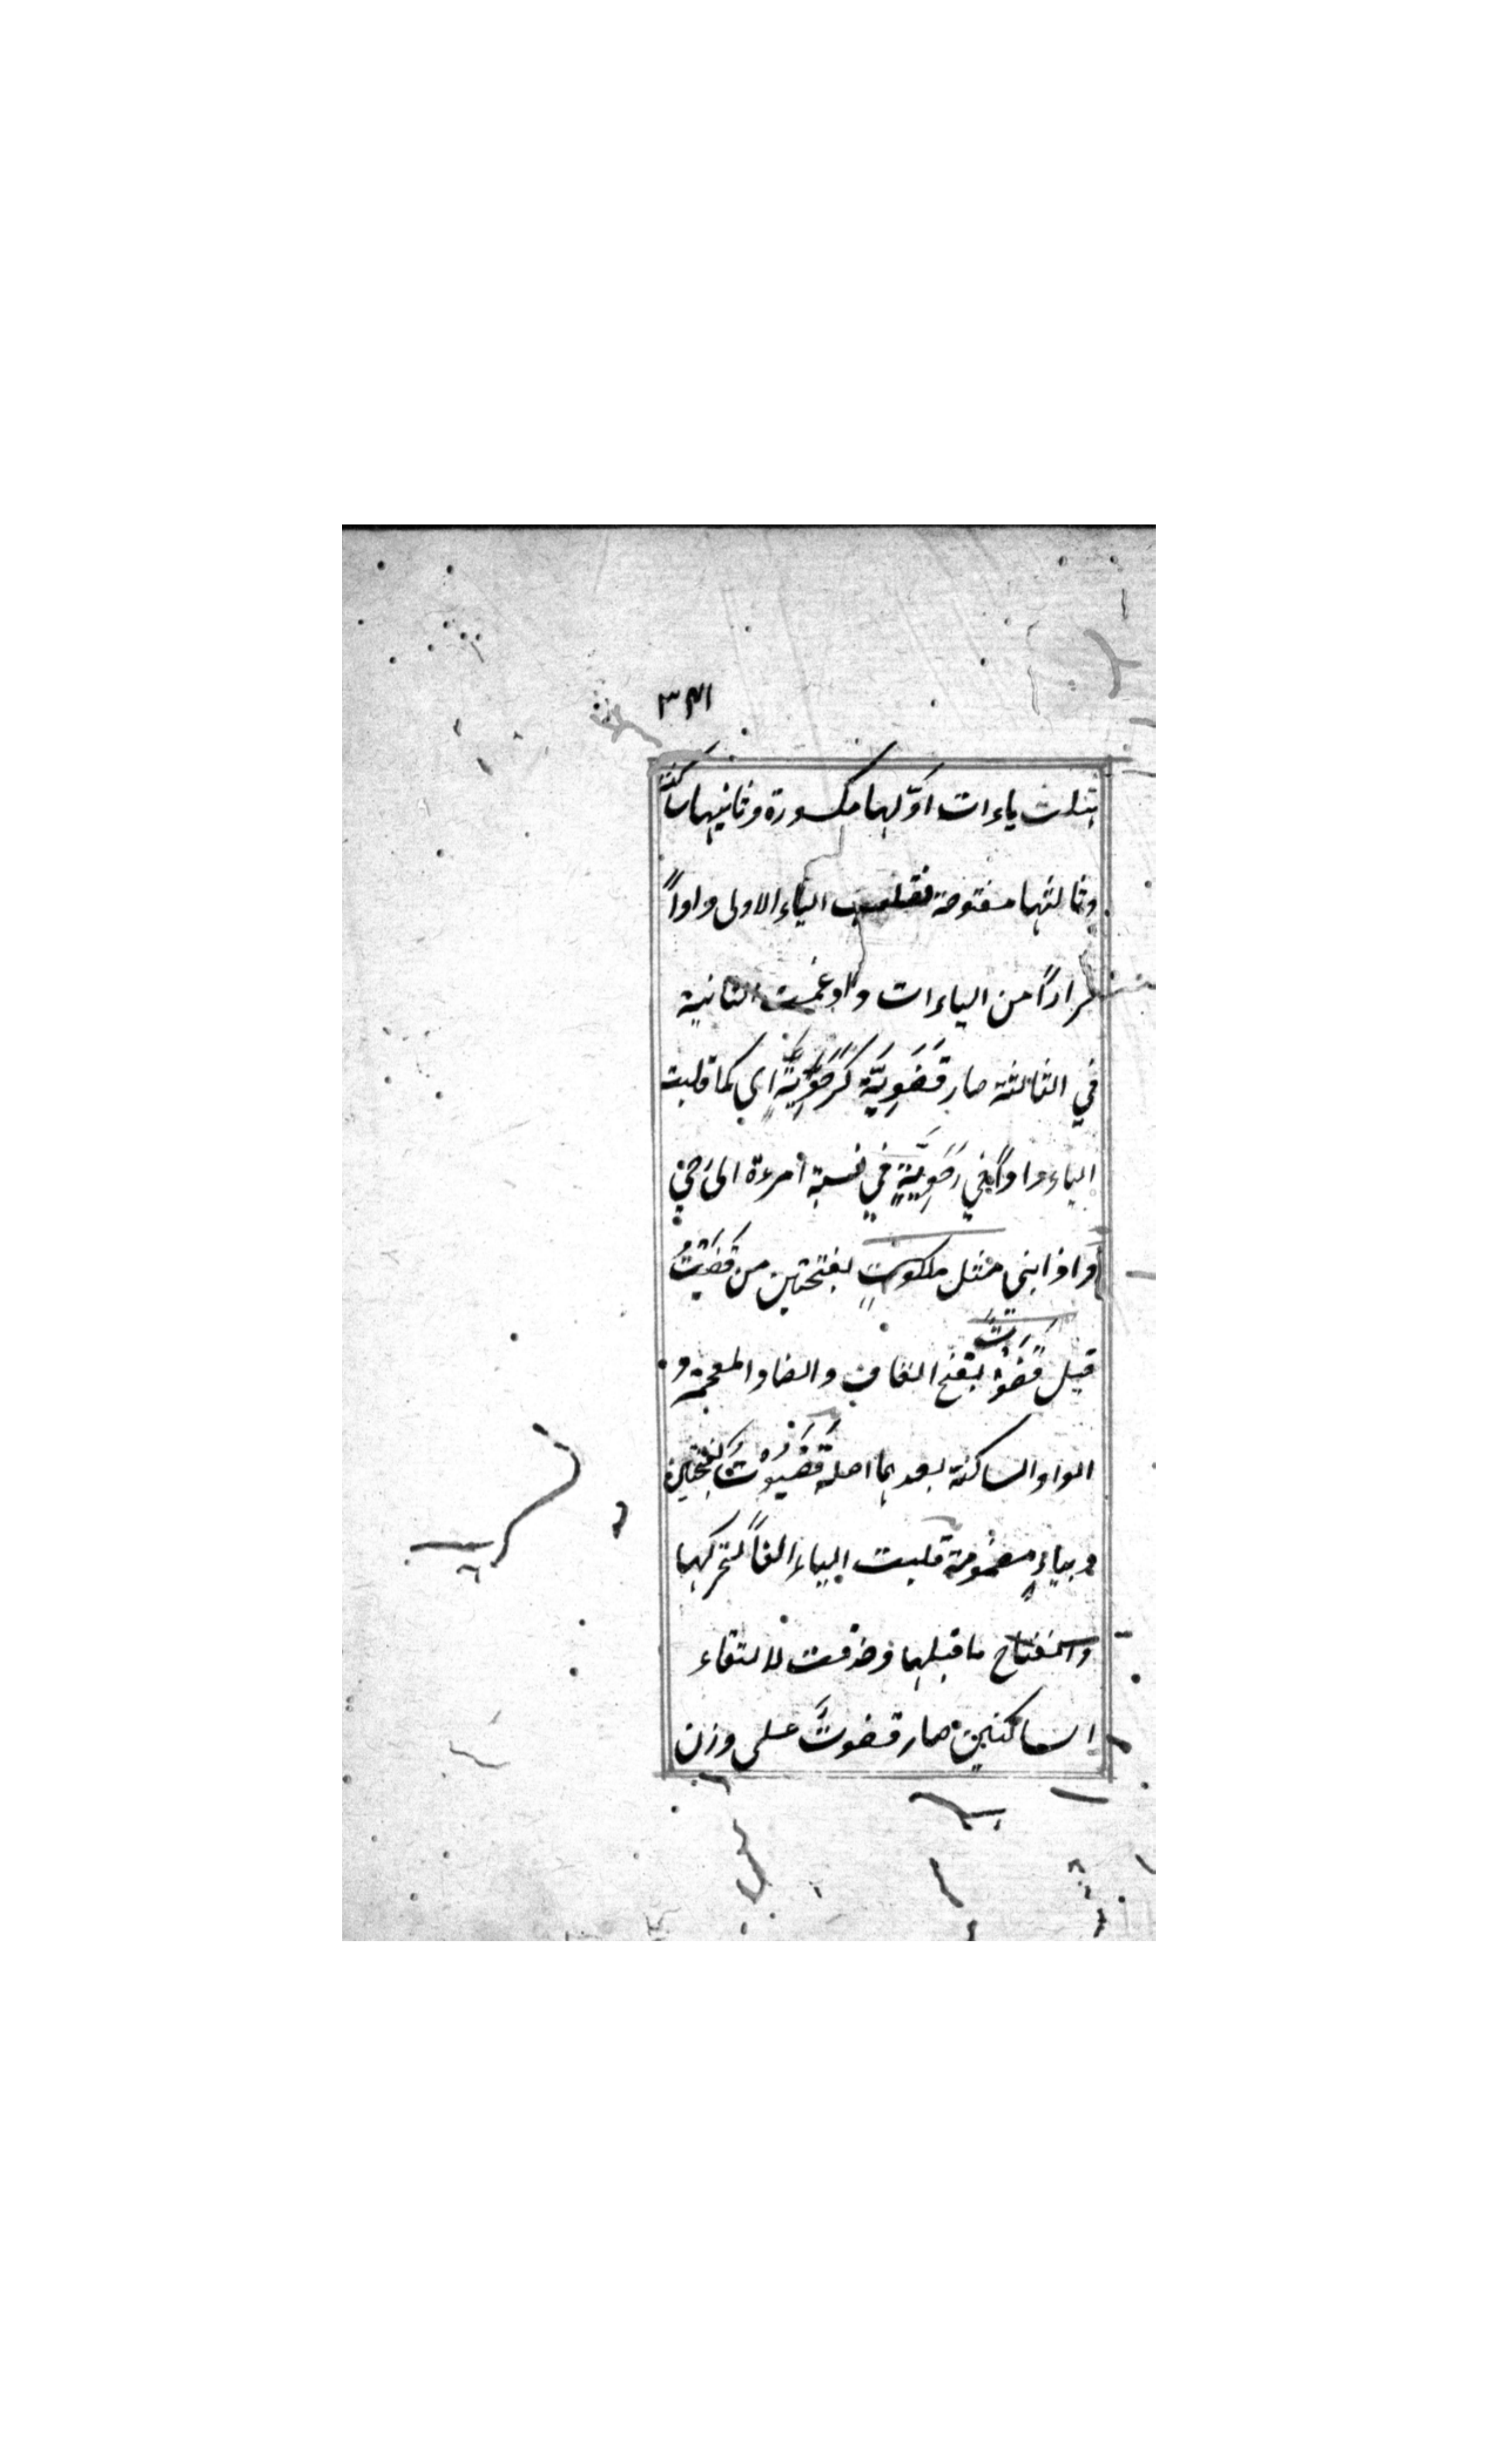 ٣٤١
بثلث ياءات اَوّلها مكسورة وثانيها ساكنة
وثالثها مفتوحة فقلبت الياء الاولى واواً
فراراً من الياءات وادغمت الثانية
في الثالثة صار قَضَوِيَّة كَرَحَوِيَّةٍ اي كما قلبت
الياء واواً في رَحَوِيَّةٍ في نسبة امرءة الى رحيٰ
واذا بنى مثل ملكوتٍ بفتحتين من قَضَيْتُ
قيل قَضَوْتٌ بفتح القاف والضاد المعجمة و
الواو الساكنة بعدها اصله قَضَيُوْتٌ بفتحتين
وبياءٍ مضمومة قلبت الياء الفاً لتحركها
وانفتاح ما قبلها وحذفت لالتقاء
الساكنين صار قضوتَ على وزن